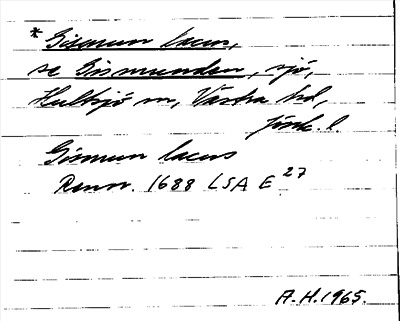 *Gismun lacus,
se Gismunden, sjö,
Hultsjö sn, Västra hd,
Jönk. l.
Gismun lacus
Rannr. 1688 LSA E 27
A.H. 1965.